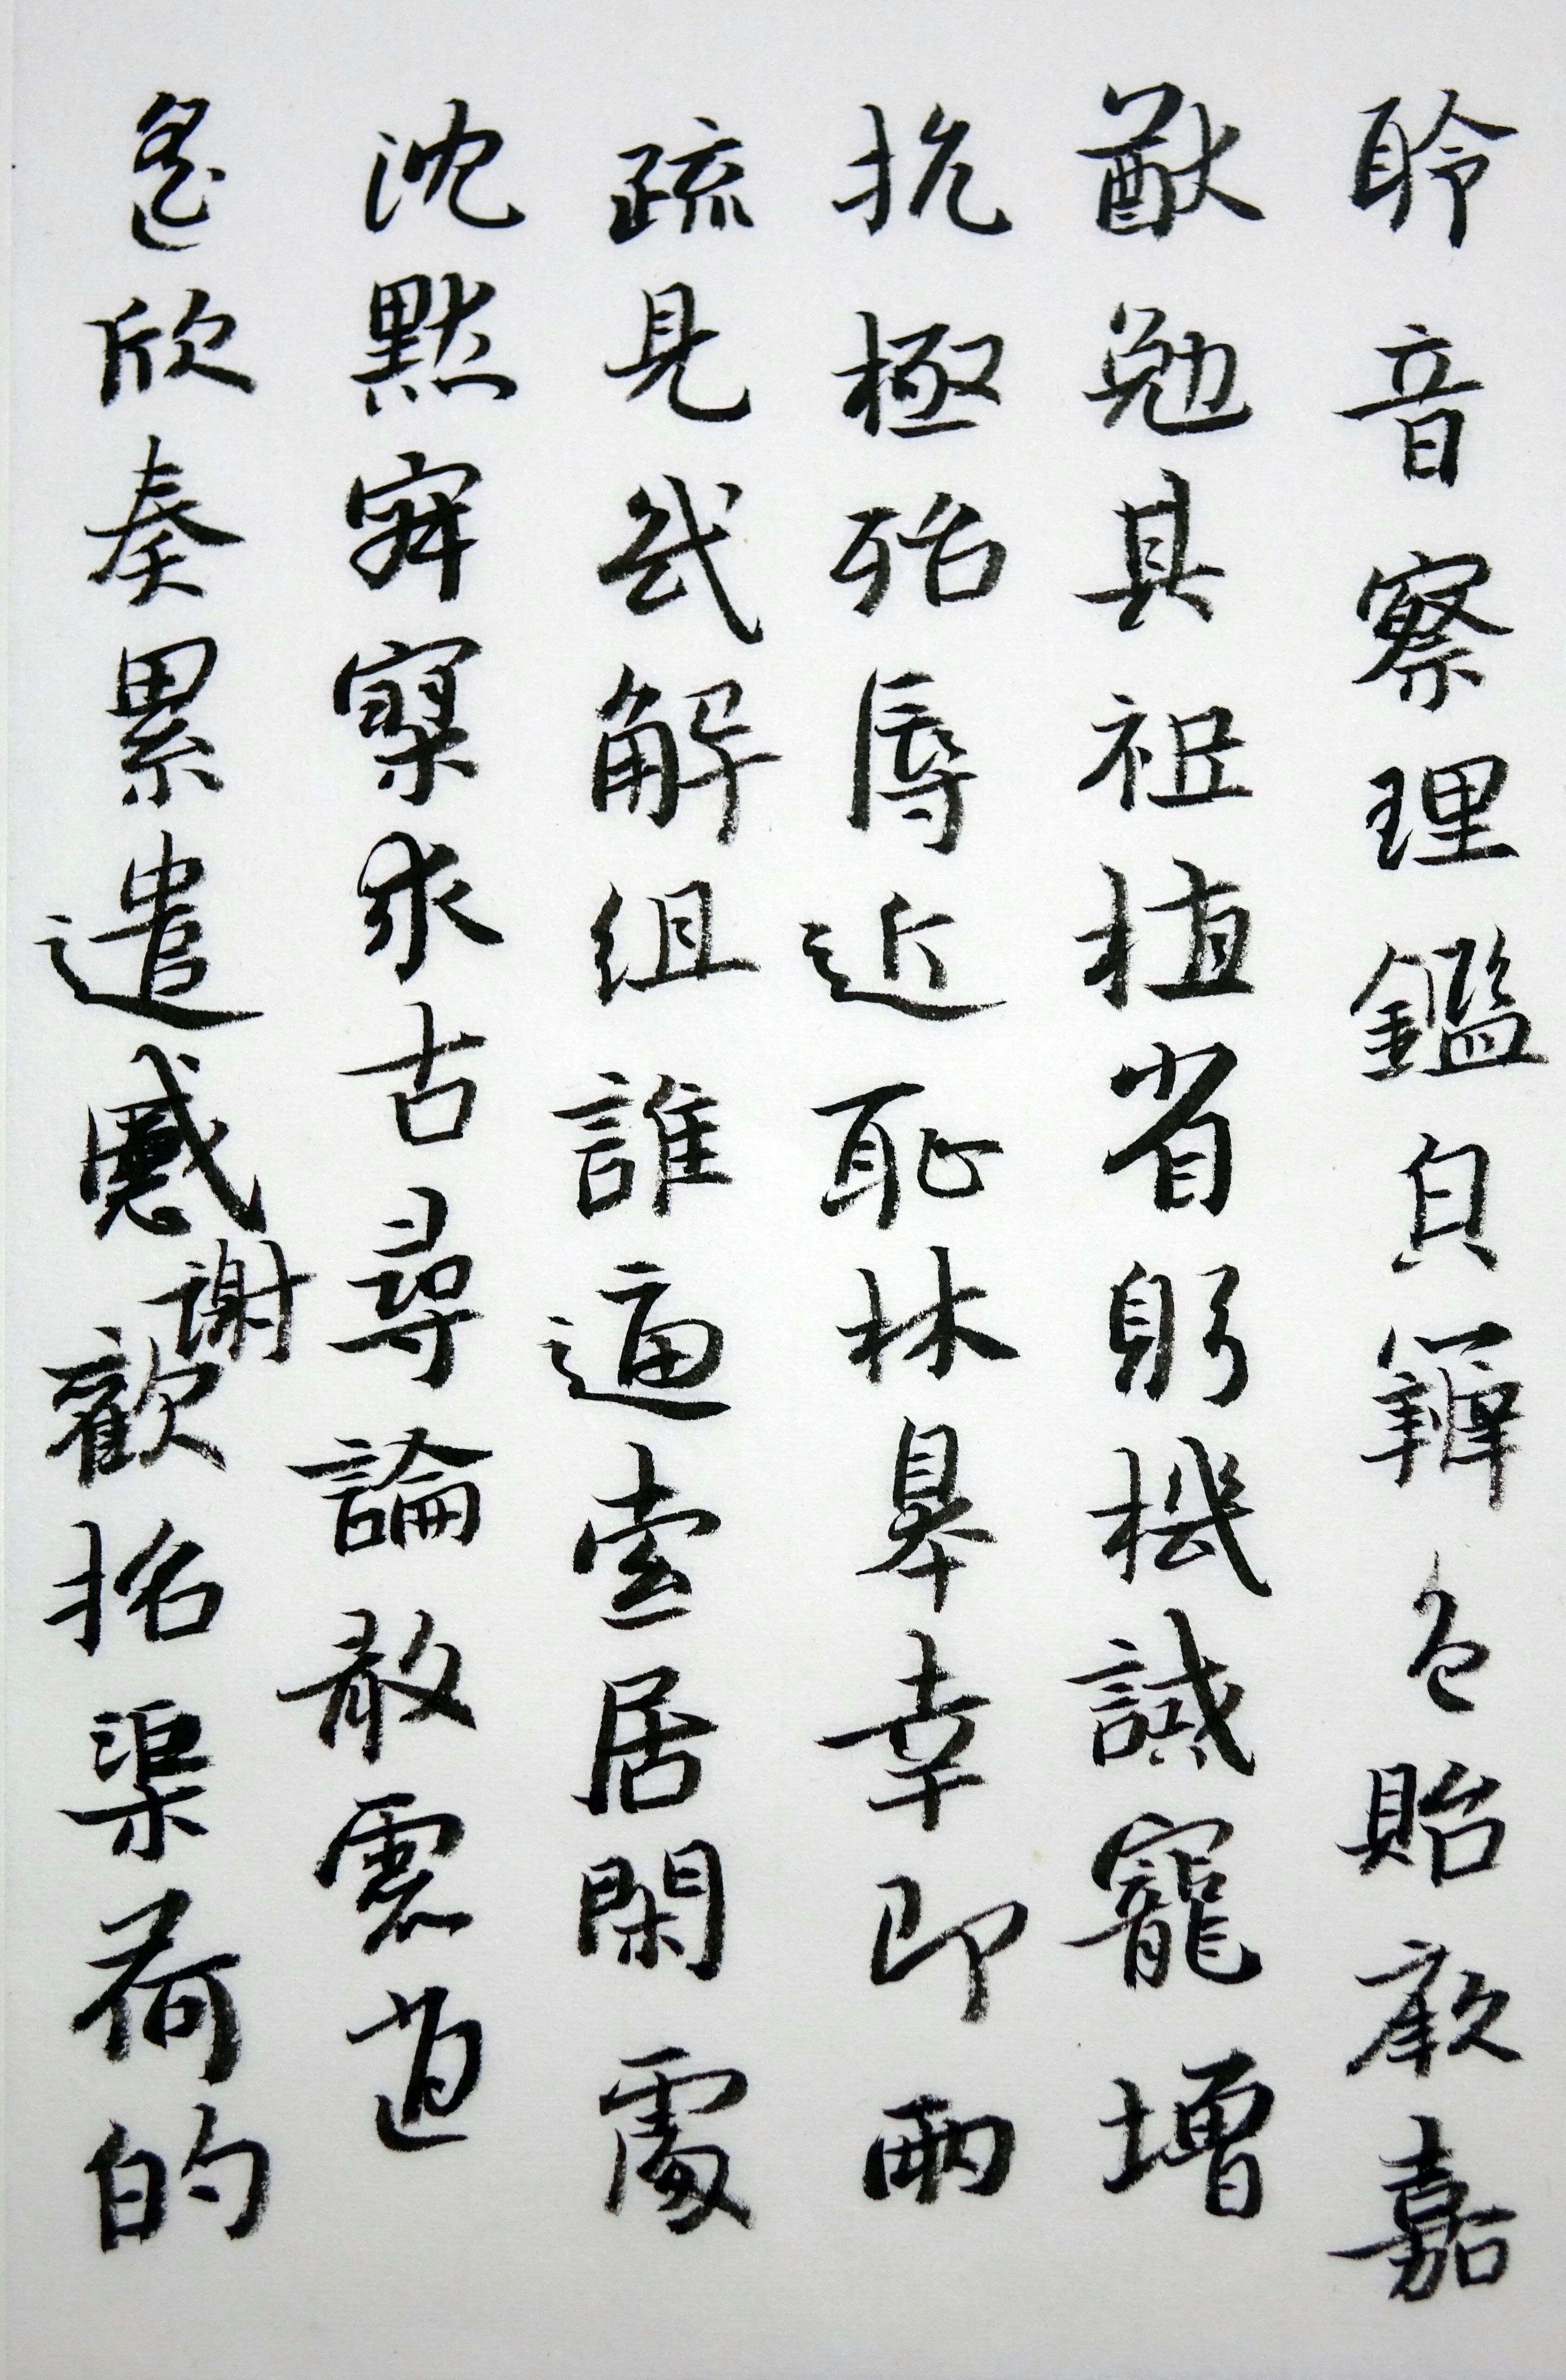 聆音察理鑑皃辯色貽厥嘉
猷勉其祗植省躬機誡寵增
抗極殆辱近恥林皋幸即兩
疏見機解組誰逼索居閑處
沈默寂寥求古尋論散慮逍
遙欣奏累遣慼謝歡招渠荷的